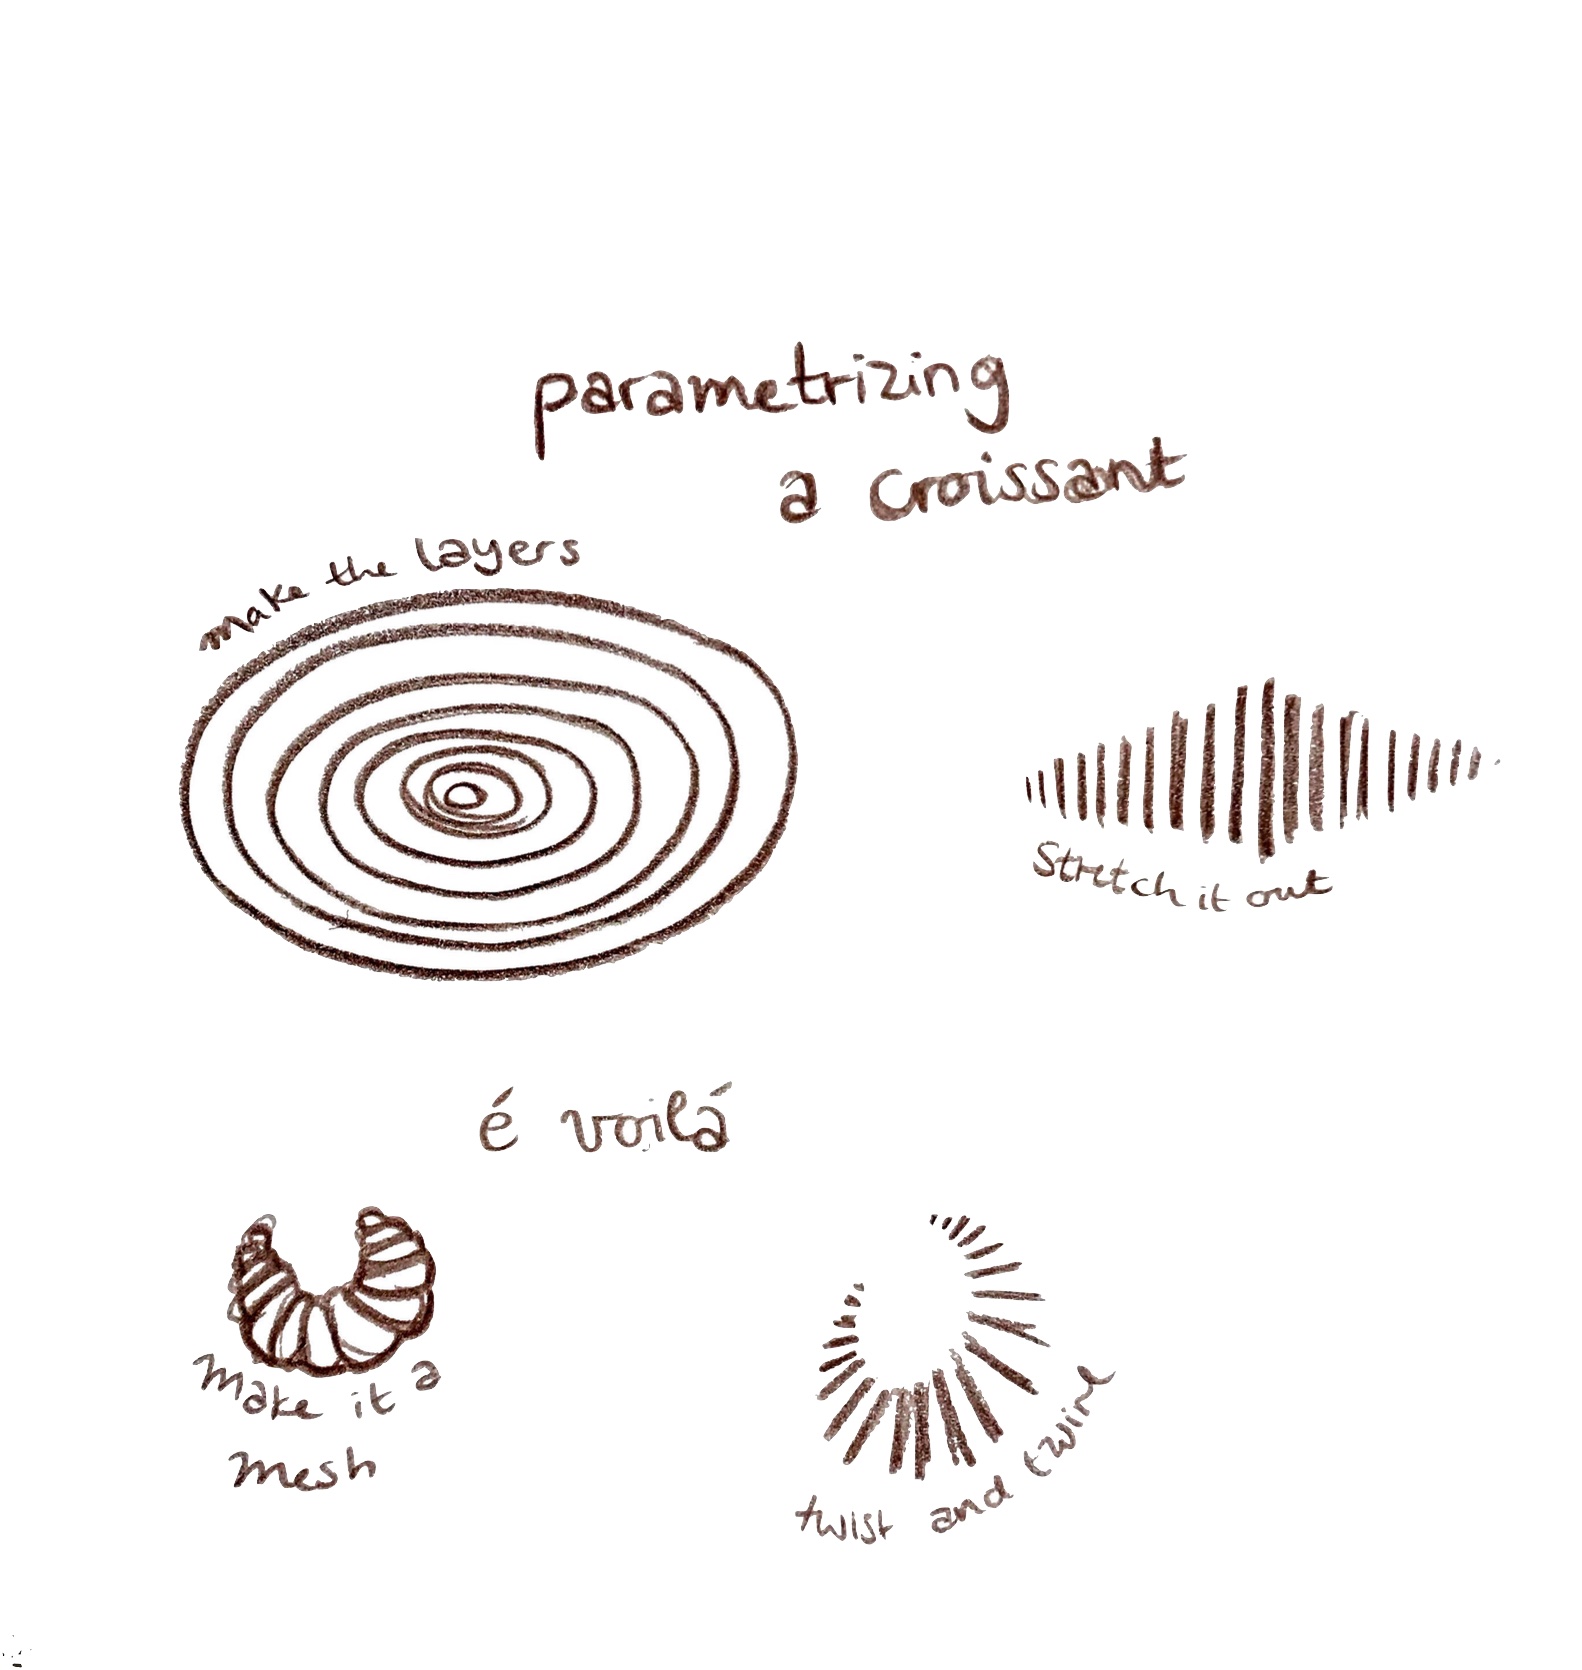 parametrizing
a croissant
make the layers
Stretch it out
é voilá
make it a
mesh
twist and twine